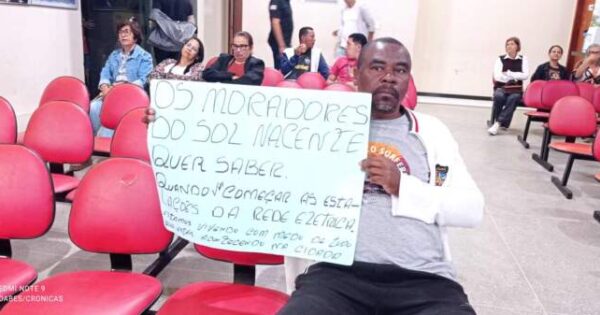 OS MORADORES
DO SOL NACENTE
QUER SABER.
QUANDO VÃO COMEÇAR AS ESTA-
LAÇÕES DA REDE EZETRICA.
VIVENDO COM MEDO DE
NA CIDADE
REDMI NOTE 9
CRÔNICAS